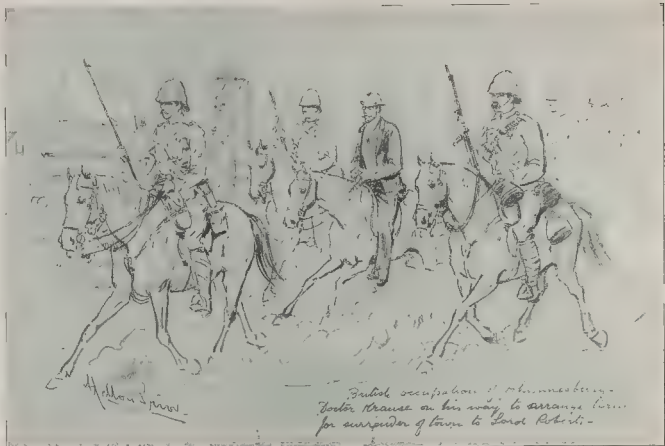 Melton Prior.
British occupation of Johannesburg.
Doctor Krause on his way to arrange
for surrender of town to Lord Roberts.